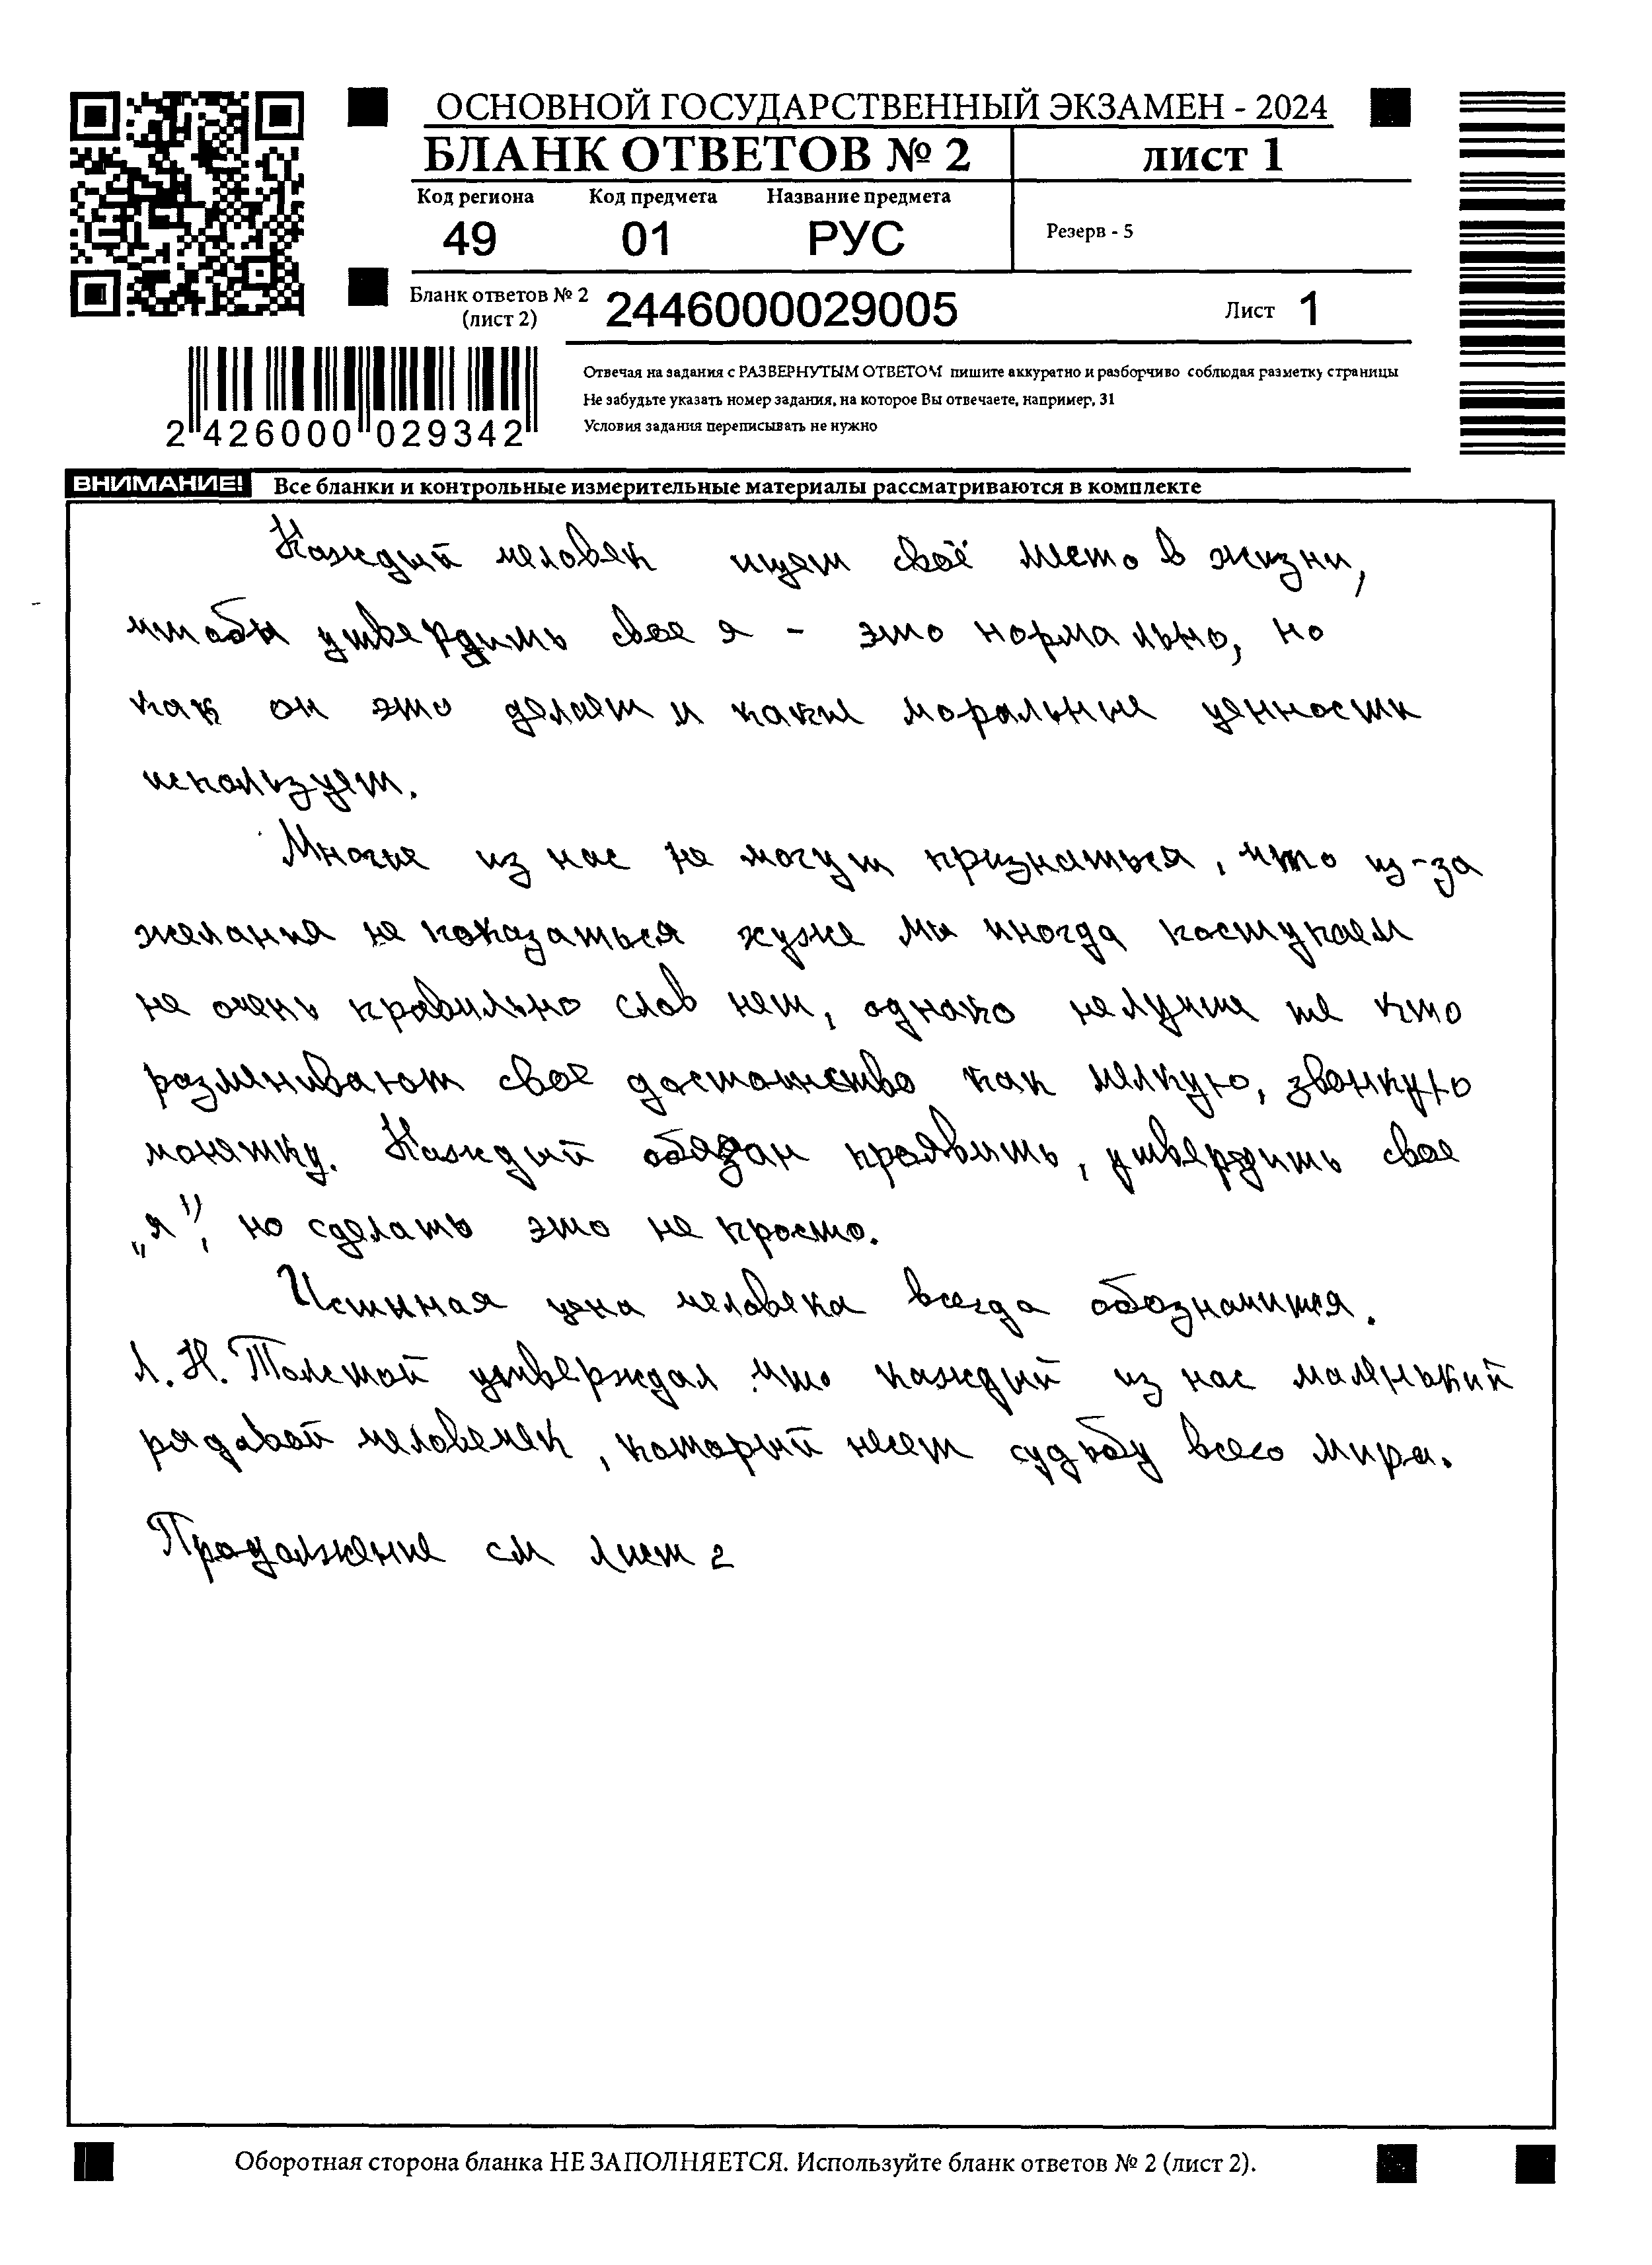 ОСНОВНОЙ ГОСУДАРСТВЕННЫЙ ЭКЗАМЕН - 2024
БЛАНК ОТВЕТОВ № 2
лист 1
Код региона Код предмета Название предмета
49 01 РУС
Резерв - 5
Бланк ответов № 2
(лист 2)
2446000029005
Лист 1
2 426000 029342
Отвечая на задания с РАЗВЕРНУТЫМ ОТВЕТОМ пишите аккуратно и разборчиво соблюдая разметку страницы
Не забудьте указать номер задания, на которое Вы отвечаете, например, 31
Условия задания переписывать не нужно
ВНИМАНИЕ! Все бланки и контрольные измерительные материалы рассматриваются в комплекте
Каждый человек ищет своё место в жизни,
чтобы утвердить свое я - это нормально, но
как он это делает и какие моральные ценности
использует.
Многие из нас не могут признаться, что из-за
желания не показаться хуже мы иногда поступаем
не очень правильно слов нет, однако не лучше те кто
разменивают свое достоинство как мелкую, звонкую
монетку. Каждый обязан проявить, утвердить свое
„я", но сделать это не просто.
Истинная цена человека всегда обозначится.
Л. Н. Толстой утверждал что каждый из нас маленький
рядовой человечек, который несет судьбу всего мира.
Продолжение см лист 2
Оборотная сторона бланка НЕ ЗАПОЛНЯЕТСЯ. Используйте бланк ответов № 2 (лист 2).